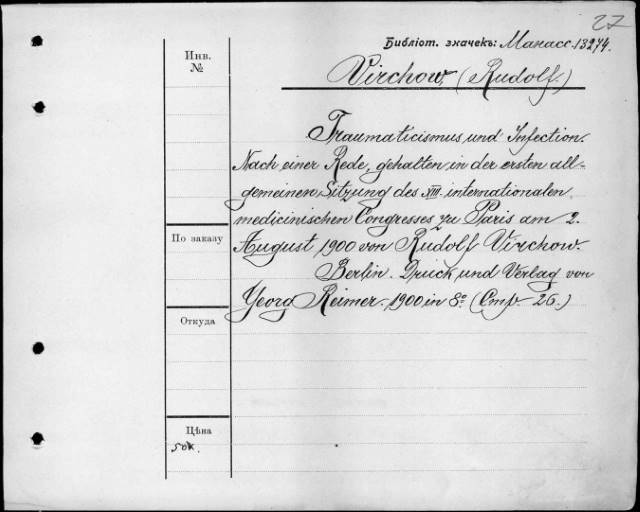 27
Библіот. значекъ: Манасс. 13274.
Инв.
№
Virchow, (Rudolf.)
Traumaticismus und Infection.
Nach einer Rede, gehalten in der ersten all-
gemeinen Sitzung des XIII. internationalen
medicinischen Congresses zu Paris am 2.
По заказу
August 1900 von Rudolf Virchow.
Berlin. Druck und Verlag von
Georg Reimer. 1900 in 8º. (Стр. 26.)
Откуда
Цѣна
50к.